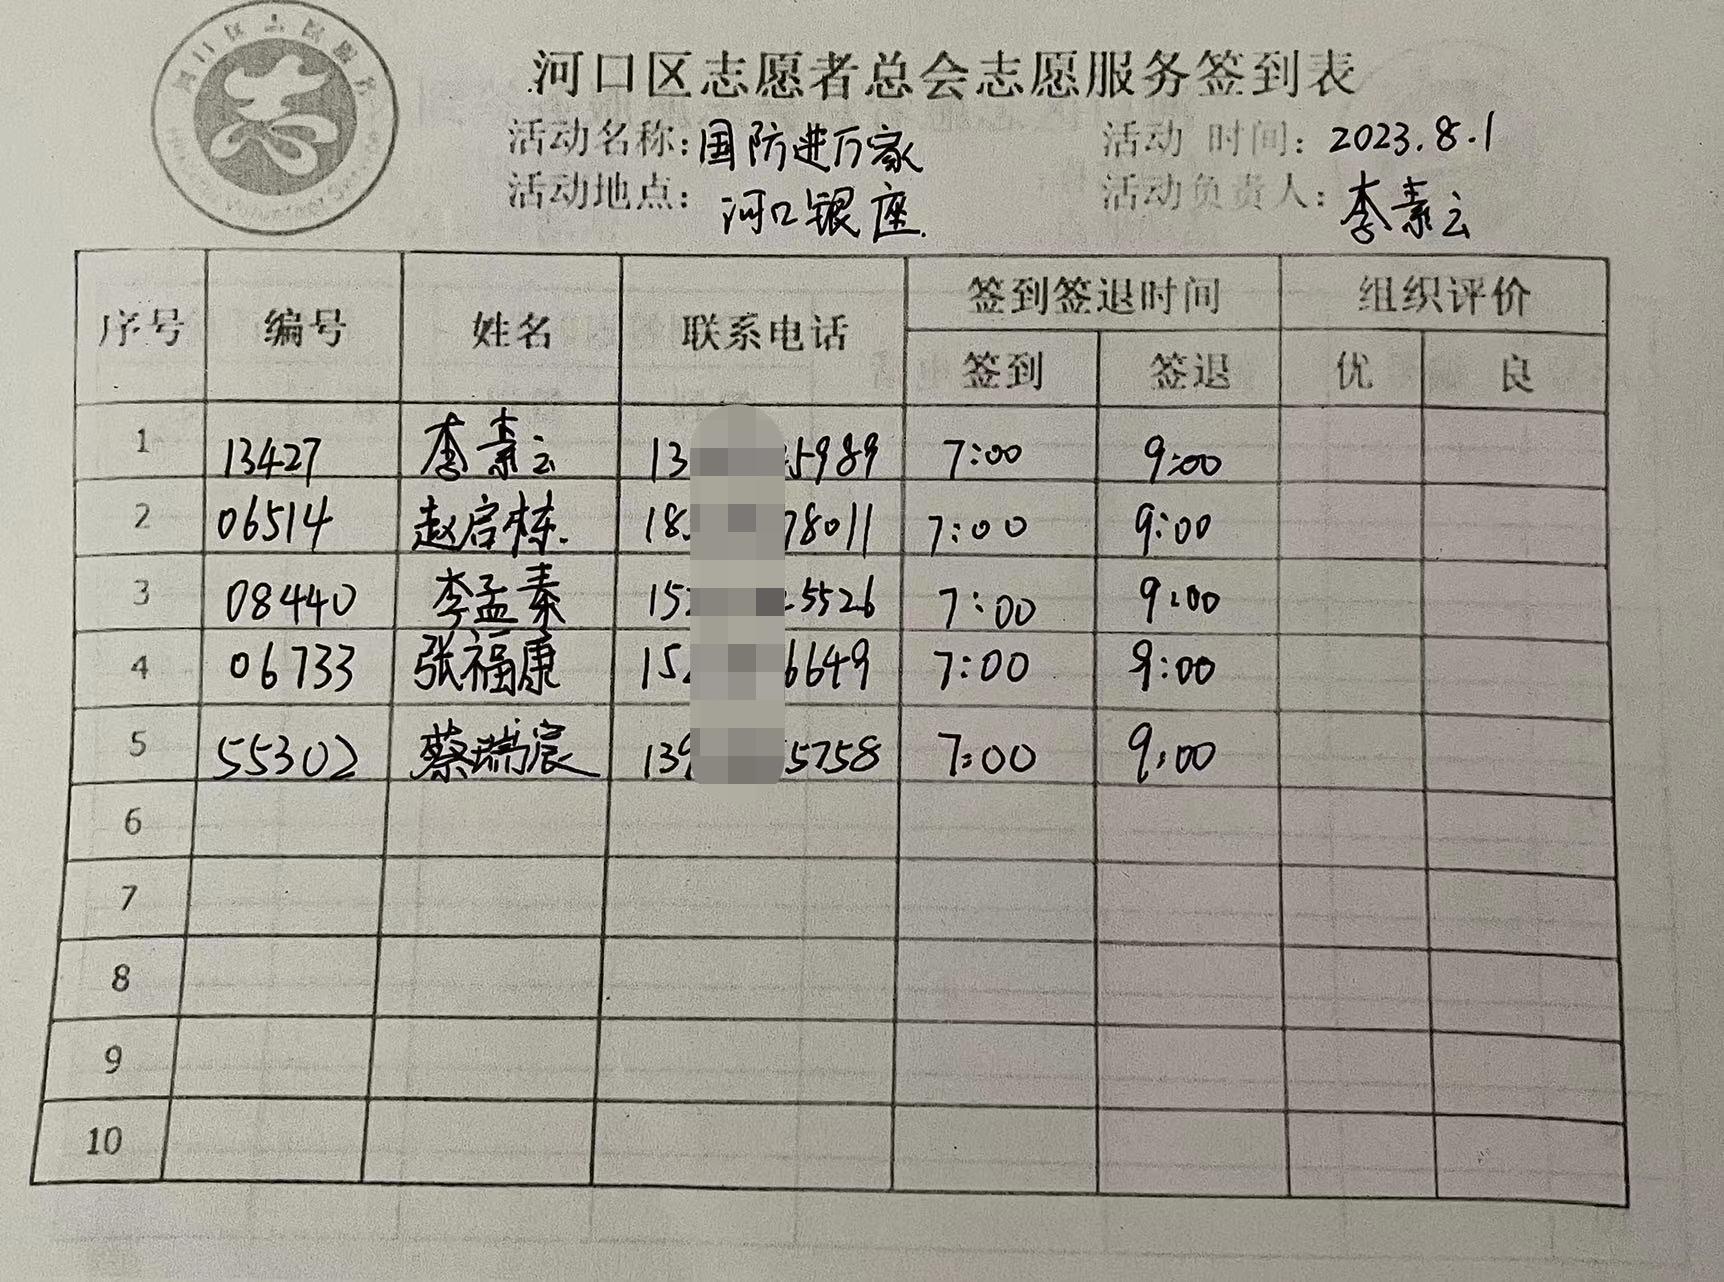 河口区志愿服务
Hekou Volunteer Service
河口区志愿者总会志愿服务签到表
活动名称：国防进万家 活动 时间：2023.8.1
活动地点：河口银座 活动负责人：李素云
序号 编号 姓名 联系电话 签到签退时间 组织评价
签到 签退 优 良
1 13427 李素云 13 5989 7:00 9:00
2 06514 赵启栋 18 78011 7:00 9:00
3 08440 李孟秦 15 5526 7:00 9:00
4 06733 张福康 15 6649 7:00 9:00
5 55302 蔡瑞宸 139 5758 7:00 9:00
6
7
8
9
10